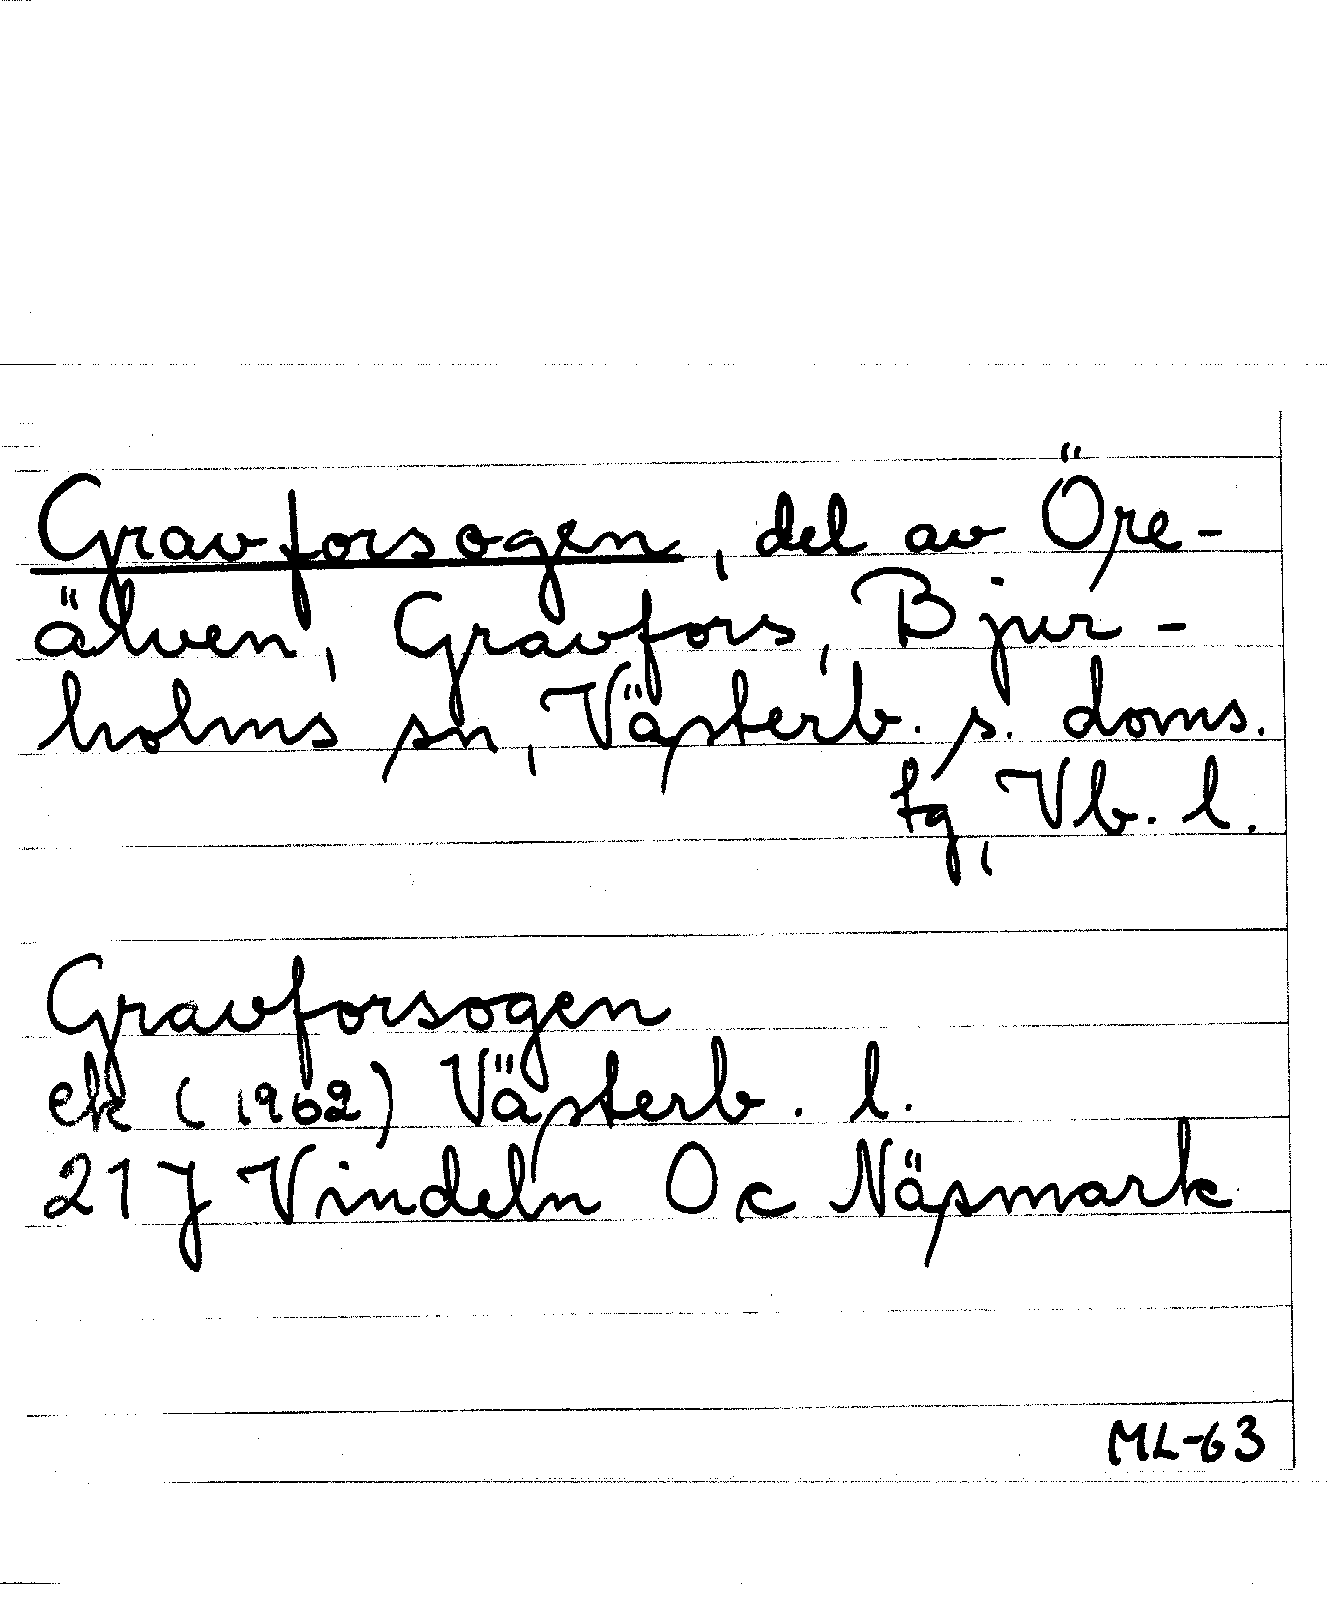 Gravforsogen, del av Öre-
älven, Gravfors, Bjur-
holms sn, Västerb. s. doms.
tg, Vb. l.
Gravforsogen
ek (1962) Västerb. l.
21 J Vindeln Oc Näsmark
ML-63